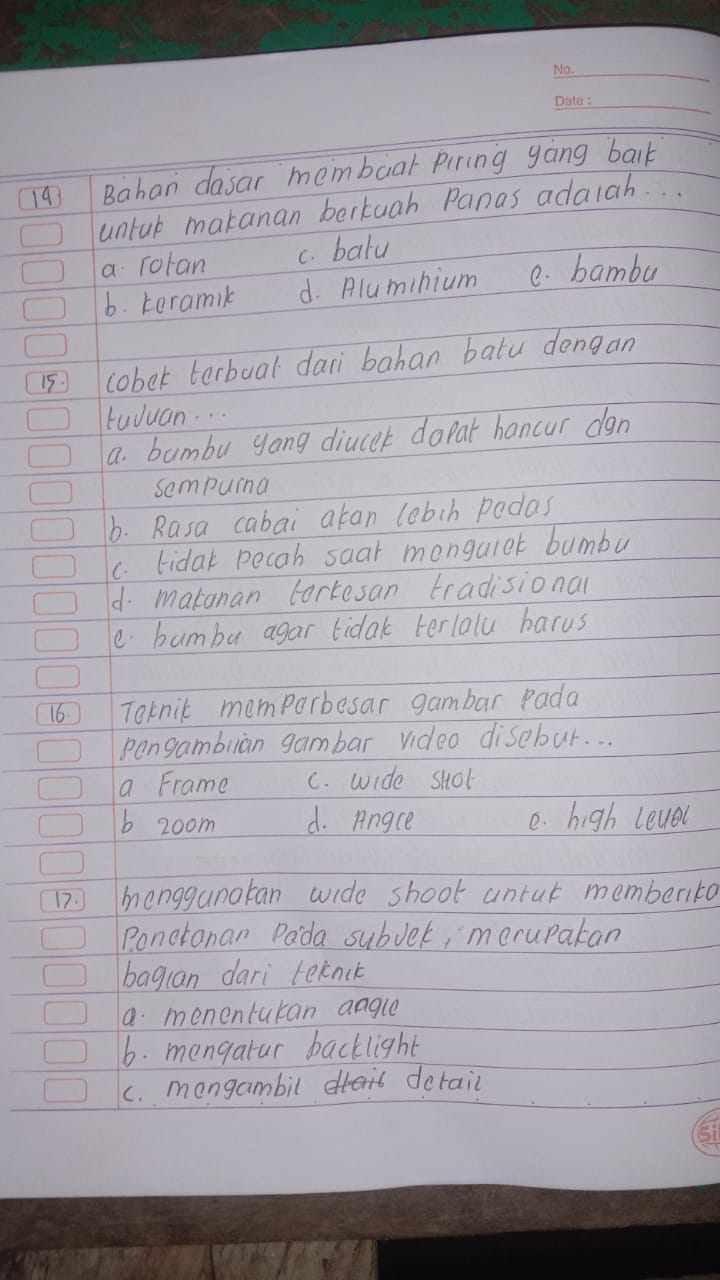 No.
Date :
14) Bahan dasar membuat piring yang baik
untuk makanan berkuah panas adalah ...
a. rotan c. batu e. bambu
b. keramik d. Aluminium
15. cobet terbuat dari bahan batu dengan
tujuan...
a. bumbu yang diucek dapat hancur dgn
sempurna
b. Rasa cabai akan lebih pedas
c. tidak pecah saat mengulek bumbu
d. makanan terkesan tradisional
e. bumbu agar tidak terlalu harus
16. Teknik memperbesar gambar pada
pengambilan gambar video disebut....
a Frame c. wide shot
b zoom d. Angle e. high level
17. menggunakan wide shoot untuk memberika
Penekanan pada subjek, merupakan
bagian dari teknik
a. menentukan angle
b. mengatur backlight
c. mengambil detail